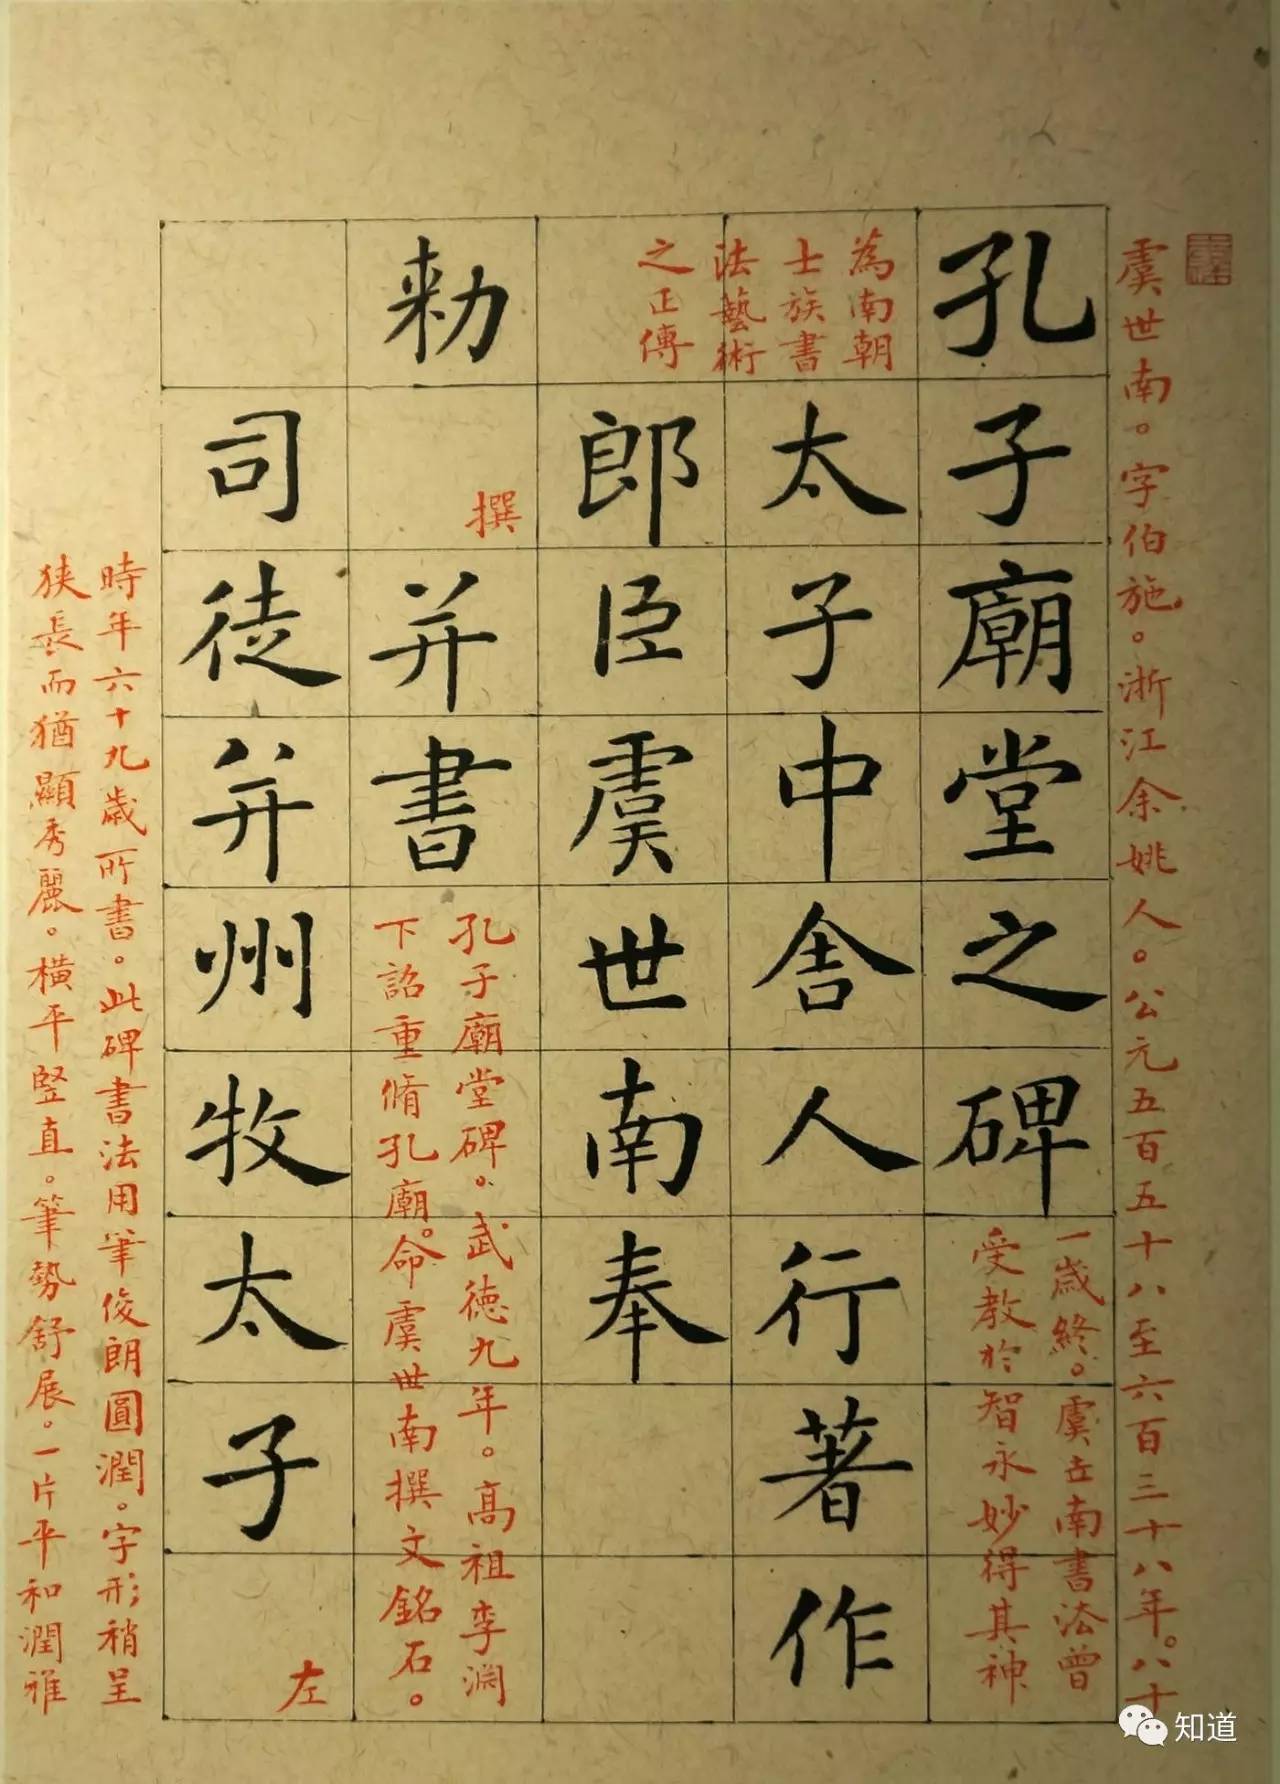 虞世南。字伯施。浙江余姚人。公元五百五十八至六百三十八年。八十
孔子廟堂之碑
一歲終。虞世南書法曾
受教於智永妙得其神
為南朝
士族書
法藝術
之正傳
太子中舍人行著作
郎臣虞世南奉
勑
撰
并書
孔子廟堂碑。武德九年。高祖李渊
下詔重脩孔廟。命虞世南撰文銘石。
司徒并州牧太子
左
時年六十九歲所書。此碑書法用筆俊朗圓潤。字形稍呈
狭長而猶顯秀麗。橫平竪直。筆勢舒展。一片平和潤雅
知道